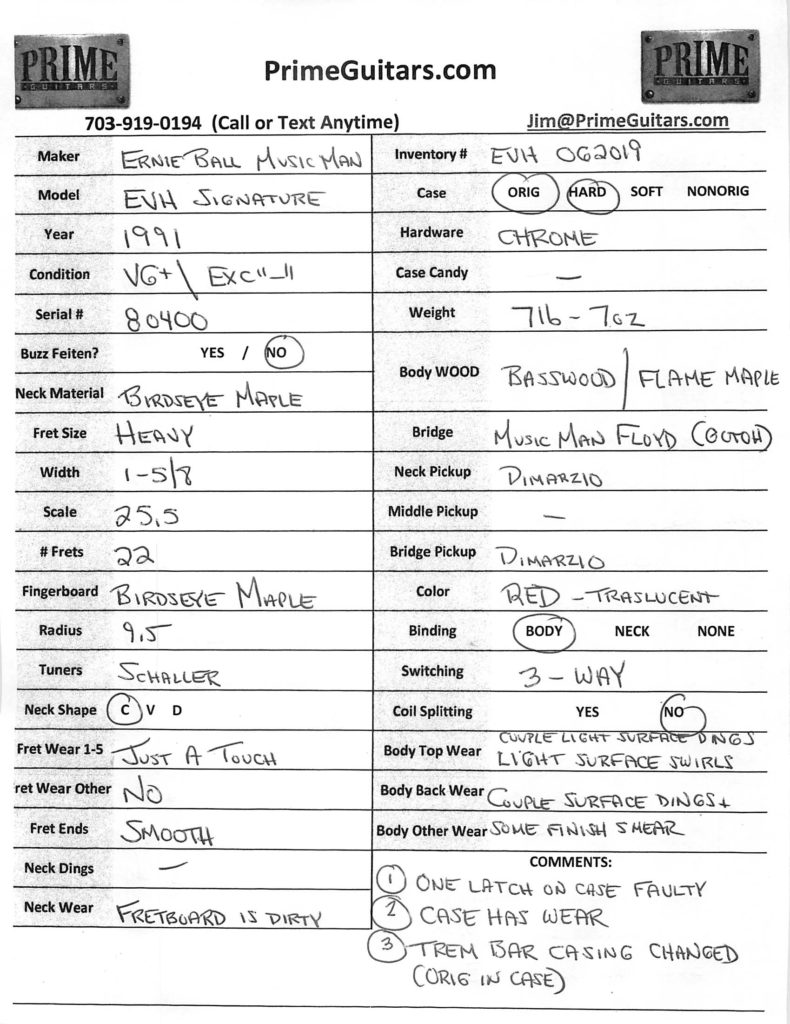 PRIME
GUITARS
PrimeGuitars.com
PRIME
GUITARS
703-919-0194 (Call or Text Anytime)
Jim@PrimeGuitars.com
Maker ERNIE BALL MUSIC MAN
Model EVH SIGNATURE
Year 1991
Condition VG+ \ EXC"-"
Serial # 80400
Buzz Feiten? YES / NO
Neck Material BIRDSEYE MAPLE
Fret Size HEAVY
Width 1-5/8
Scale 25.5
# Frets 22
Fingerboard BIRDSEYE MAPLE
Radius 9.5
Tuners SCHALLER
Neck Shape C V D
Fret Wear 1-5 JUST A TOUCH
ret Wear Other NO
Fret Ends SMOOTH
Neck Dings —
Neck Wear FRETBOARD IS DIRTY
Inventory # EVH 062019
Case ORIG HARD SOFT NONORIG
Hardware CHROME
Case Candy —
Weight 7lb - 7oz
Body WOOD BASSWOOD / FLAME MAPLE
Bridge MUSIC MAN FLOYD (GOTOH)
Neck Pickup DIMARZIO
Middle Pickup —
Bridge Pickup DIMARZIO
Color RED - TRASLUCENT
Binding BODY NECK NONE
Switching 3 - WAY
Coil Splitting YES NO
Body Top Wear COUPLE LIGHT SURFACE DINGS
LIGHT SURFACE SWIRLS
Body Back Wear COUPLE SURFACE DINGS +
Body Other Wear SOME FINISH SMEAR
COMMENTS:
1 ONE LATCH ON CASE FAULTY
2 CASE HAS WEAR
3 TREM BAR CASING CHANGED
(ORIG IN CASE)